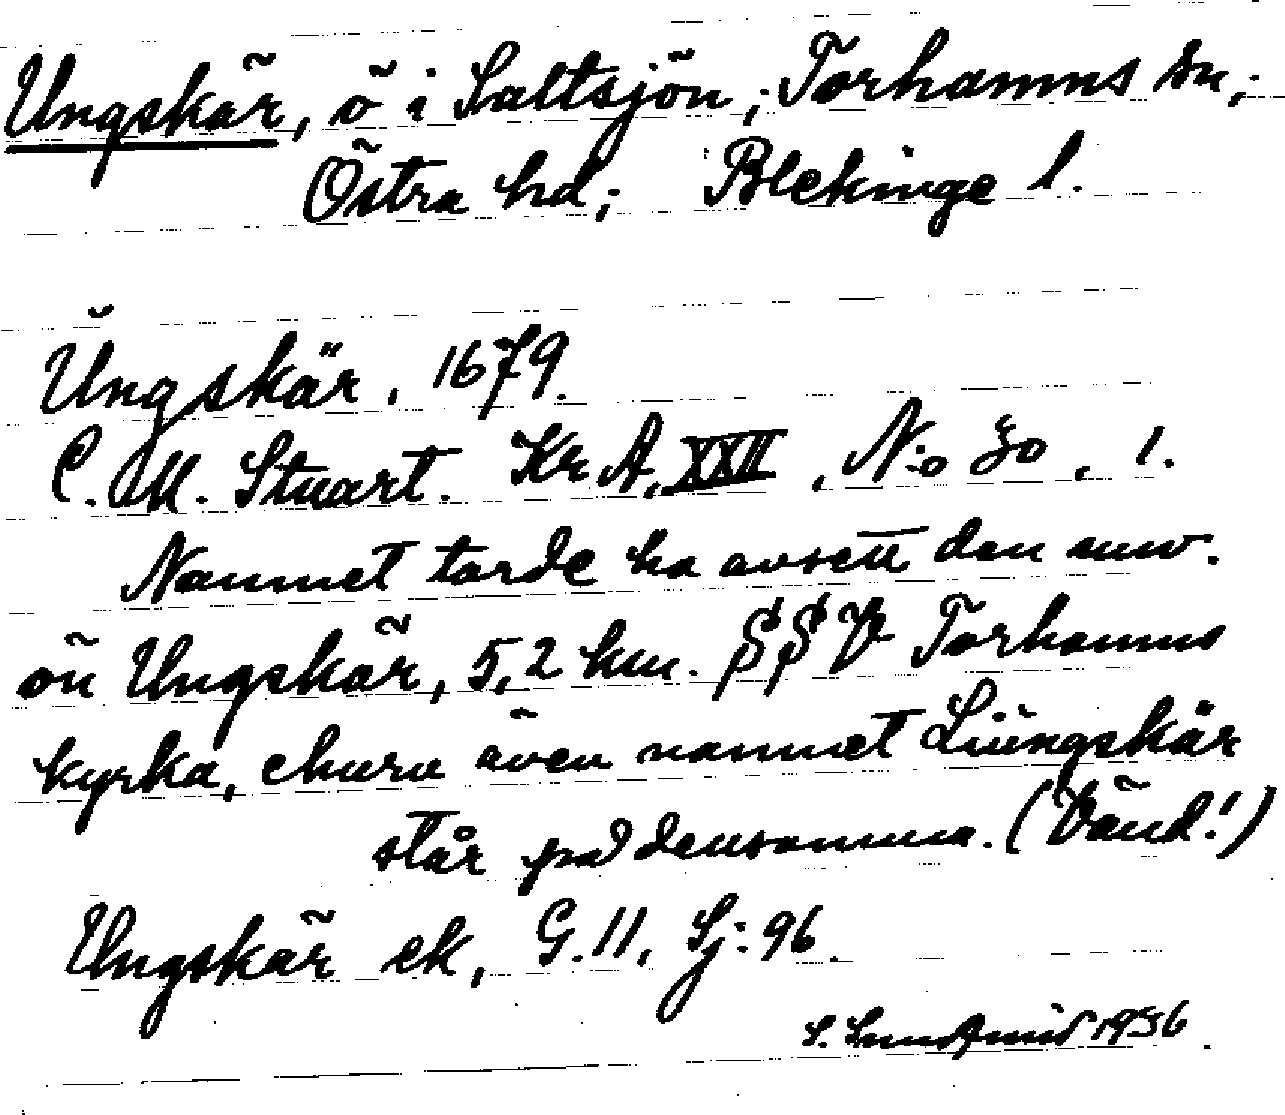 Ungskär, ö i Saltsjön; Torhamns sn;
Östra hd; Blekinge l.
Ŭngskär, 1679.
C. M. Stuart. Kr A, XXII, N:o 30, 1.
Namnet torde ha avsett den nuv.
ön Ungskär, 5,2 km. SSV Torhamns
kyrka, ehuru även namnet Liŭngskär
står på densamma. (Vänd!)
Ungskär ek, G.11, Sj:96.
S. 1936